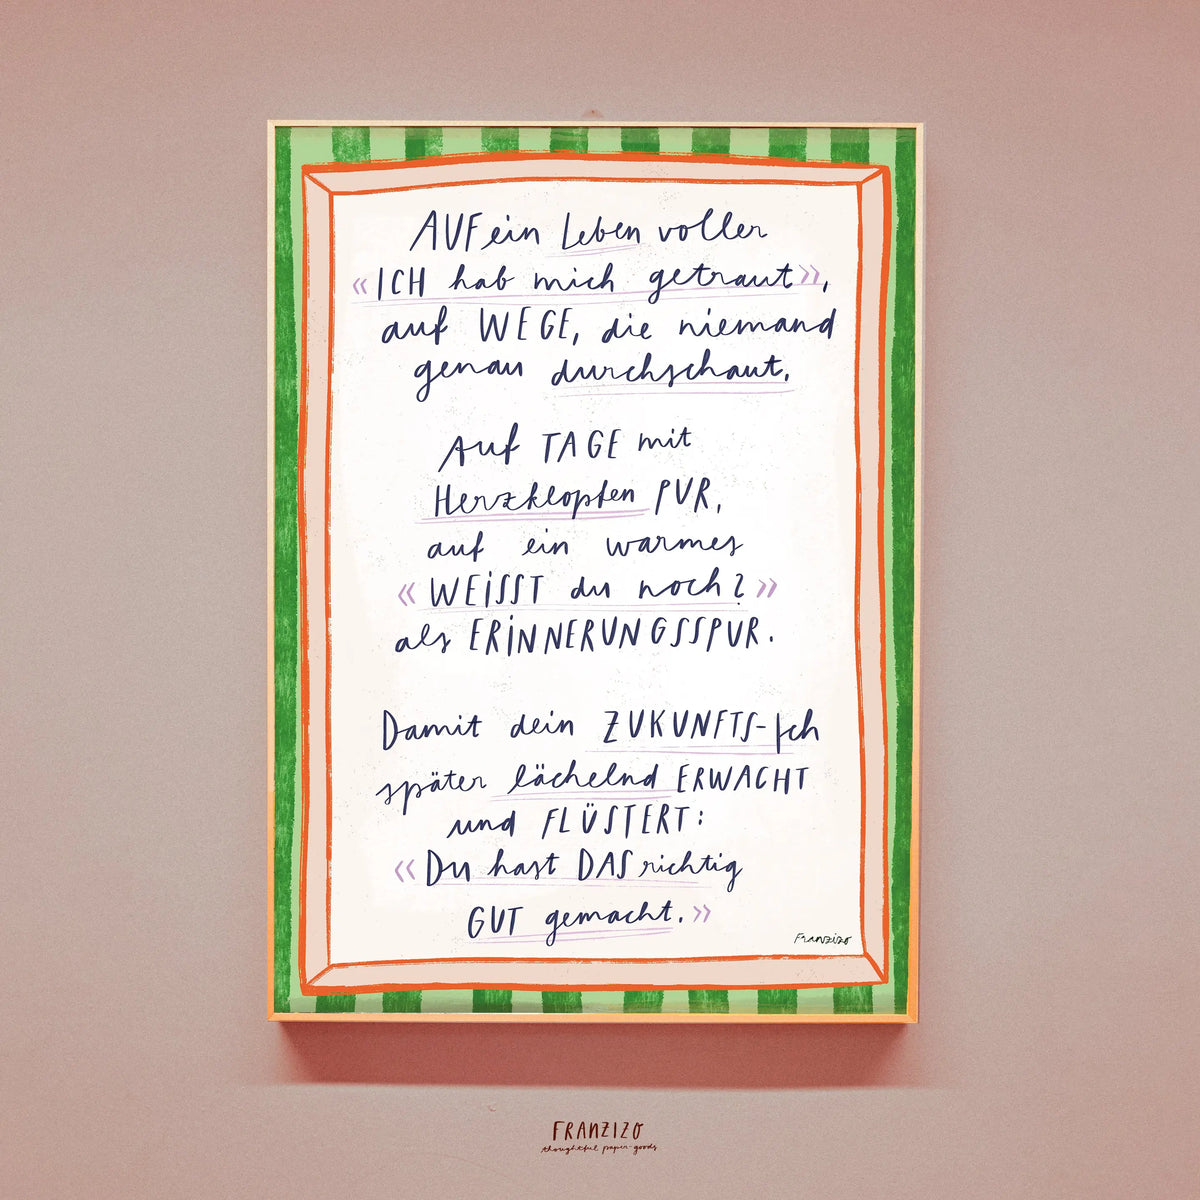 AUF ein Leben voller
«ICH hab mich getraut»,
auf WEGE, die niemand
genau durchschaut.
Auf TAGE mit
Herzklopfen PUR,
auf ein warmes
«WEISST du noch?»
als ERINNERUNGSSPUR.
Damit dein ZUKUNFTS-Ich
später lächelnd ERWACHT
und FLÜSTERT:
«Du hast DAS richtig
GUT gemacht.»
Franzizo
FRANZIZO
thoughtful paper-goods